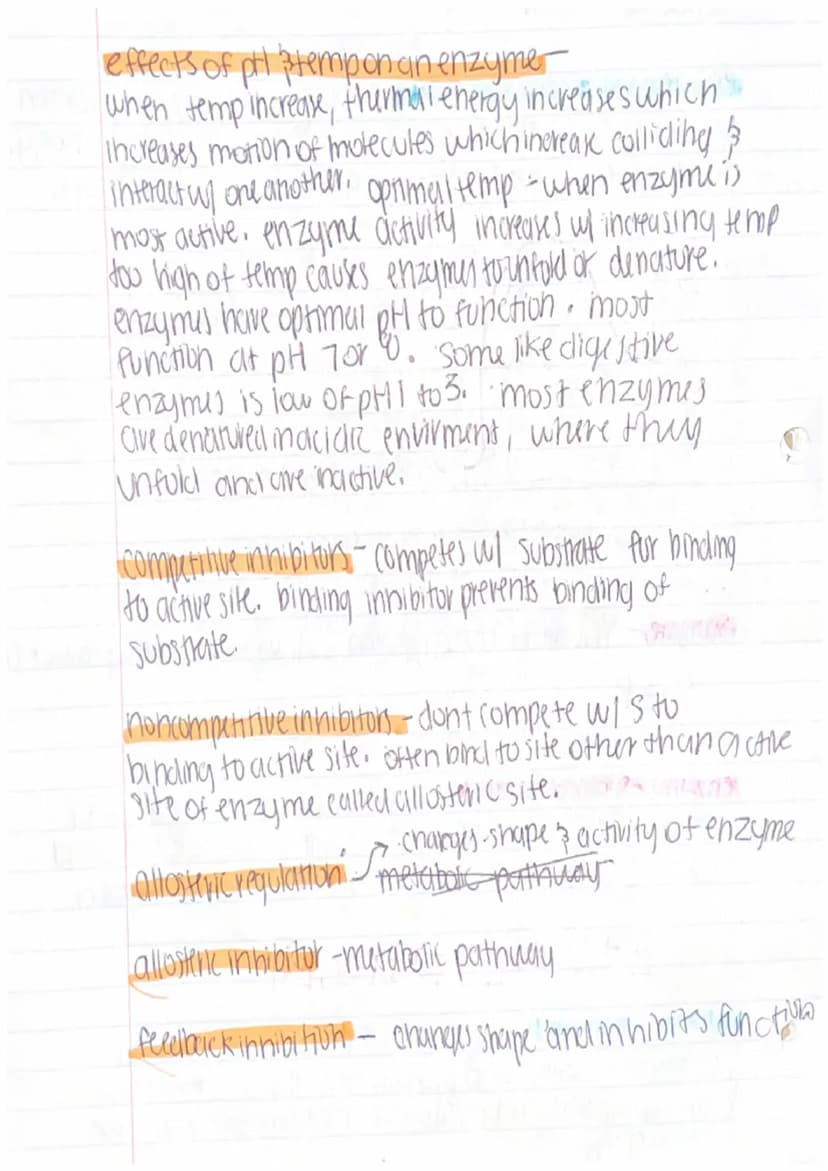 effects of pH & temp on an enzyme -
when temp increase, thermal energy increases which
increases motion of molecules which increase colliding &
interact w/ one another. optimal temp - when enzyme is
most active. enzyme activity increases w/ increasing temp
too high of temp causes enzymes to unfold or denature.
enzymes have optimal pH to function. most
function at pH 7 or 8. some like digestive
enzymes is low of pH 1 to 3. most enzymes
are denatured in acidic envirment, where they
unfold and are inactive.
competitive inhibitors - competes w/ substrate for binding
to active site. binding inhibitor prevents binding of
substrate.
noncompetitive inhibitors - dont compete w/ S to
binding to active site. often bind to site other than active
site of enzyme called allosteric site.
changes shape & activity of enzyme
allosteric regulation - metabolic pathway
allosteric inhibitor - metabolic pathway
feedback inhibition - changes shape and inhibits function